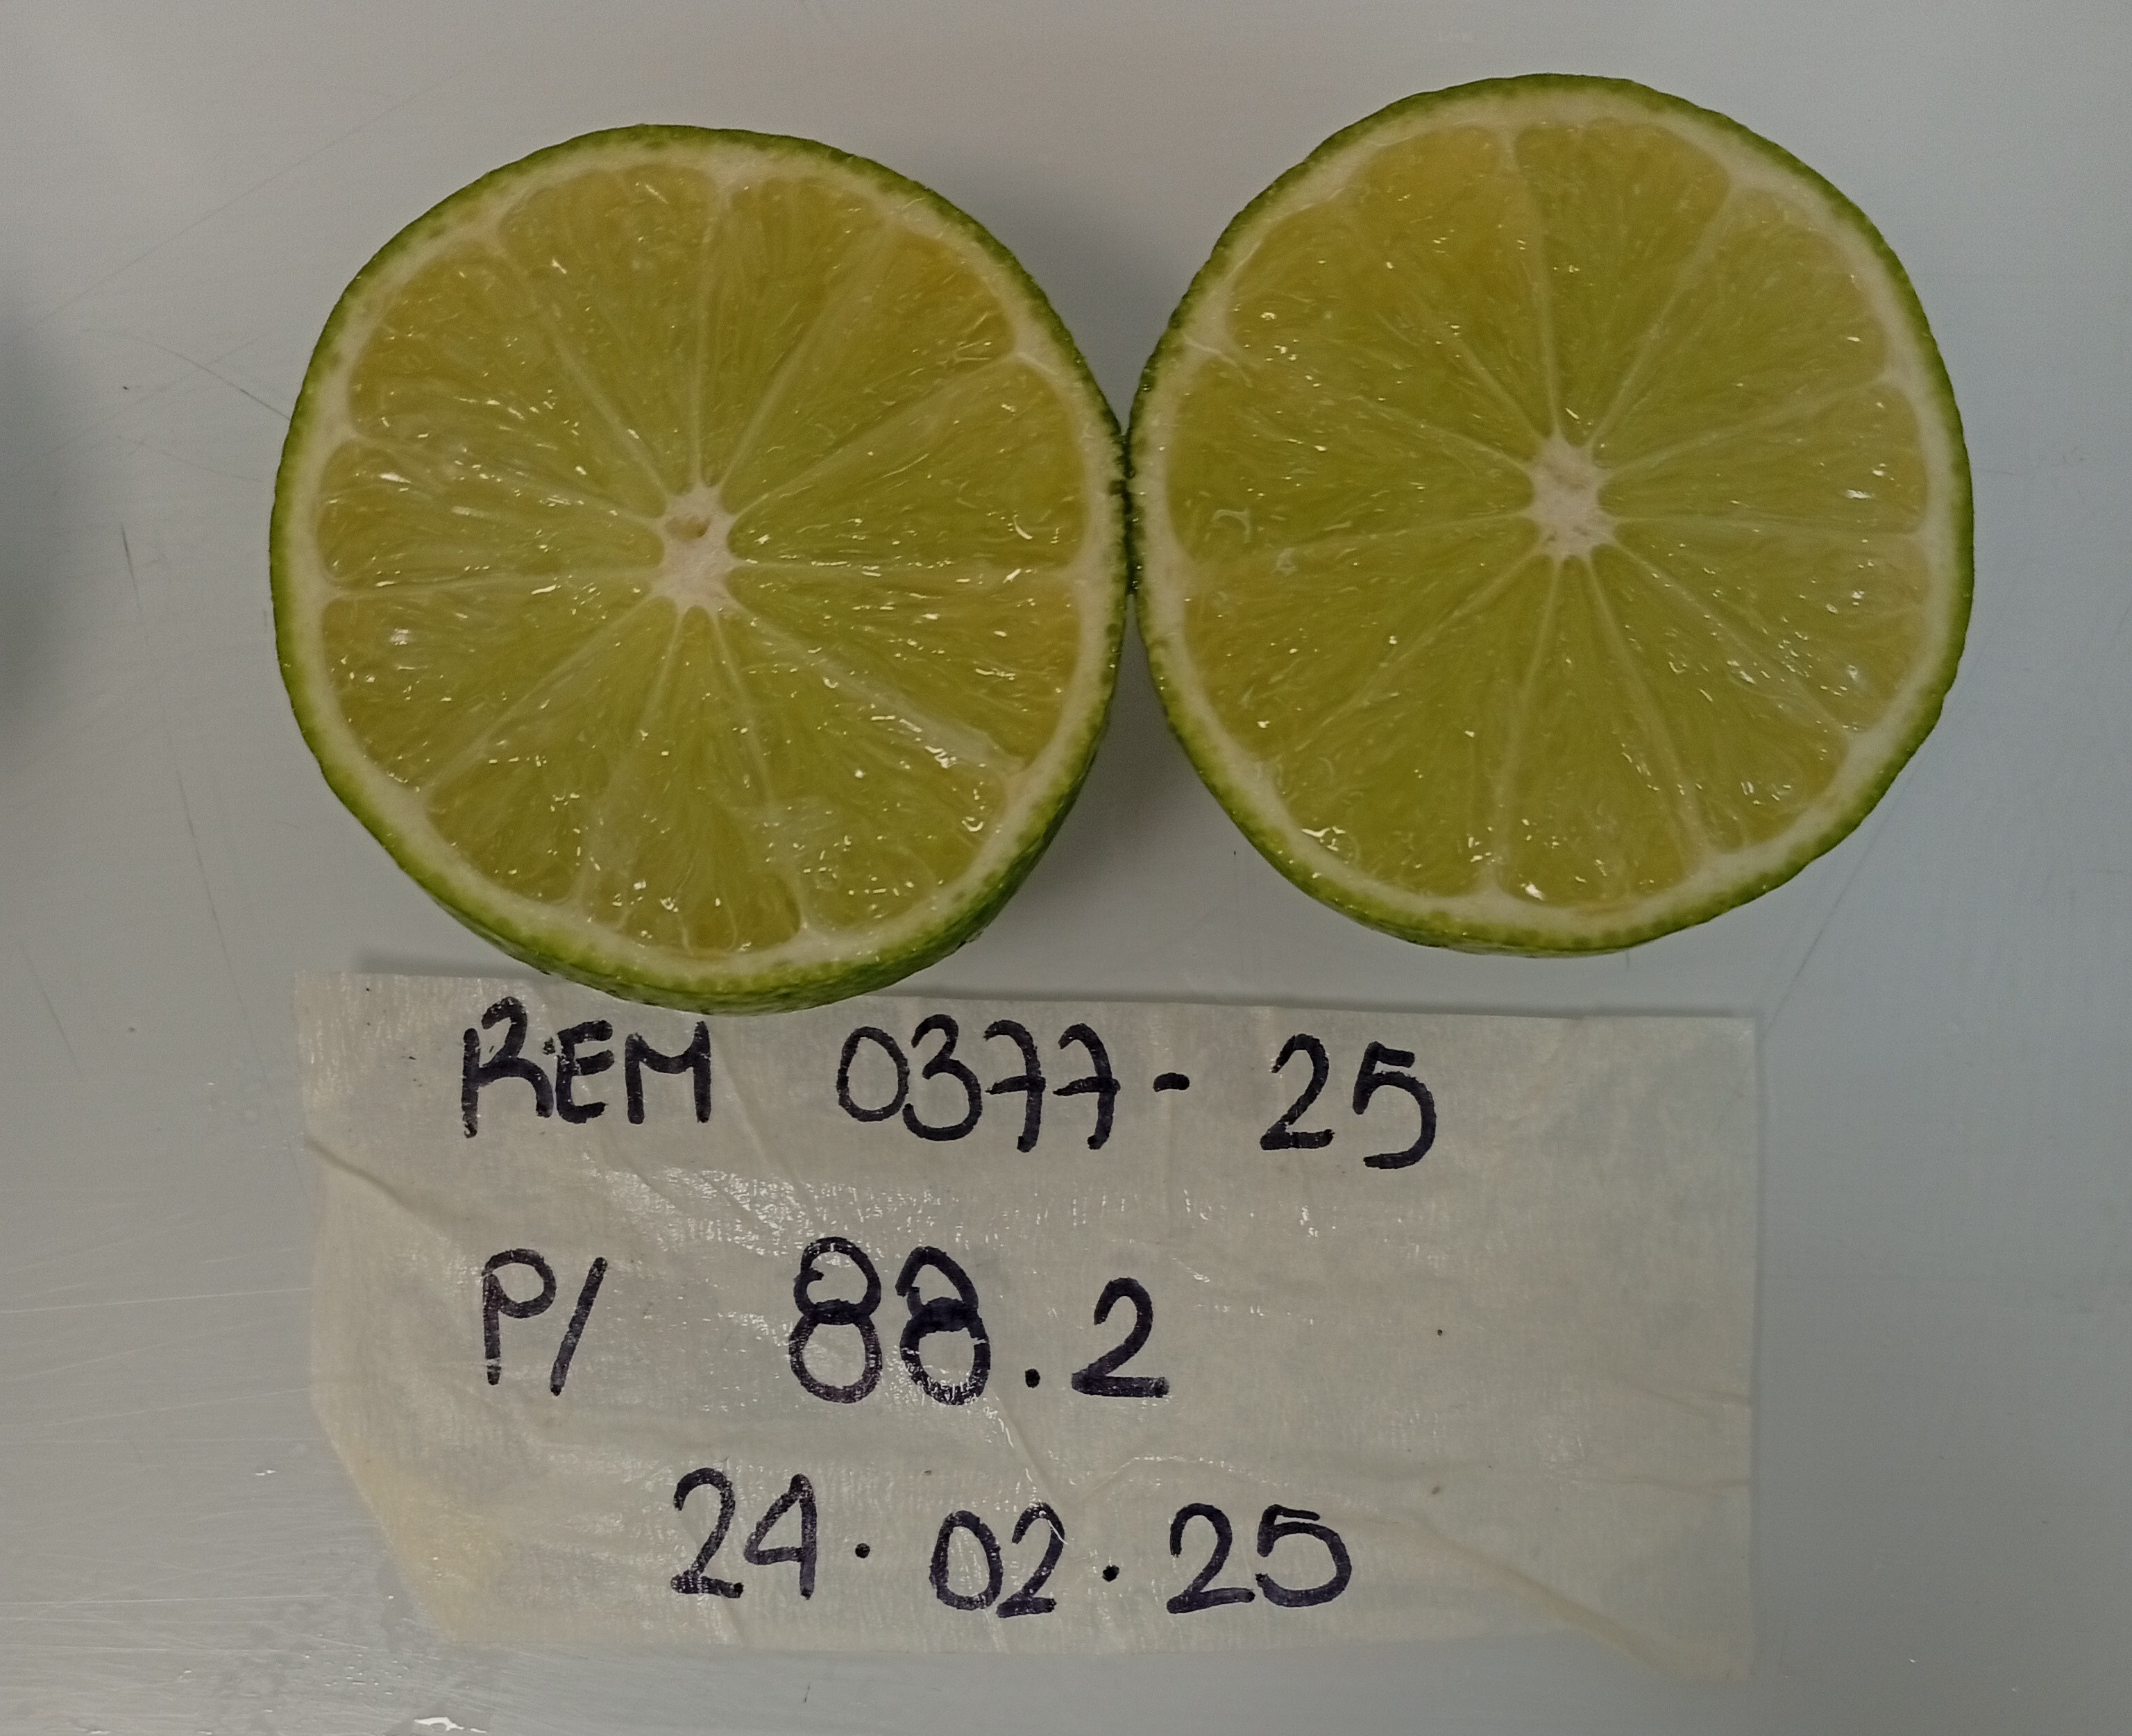 REM 0377- 25
P/ 88.2
24.02.25